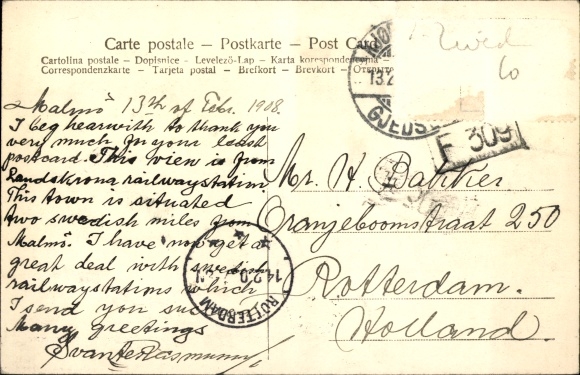 Carte postale – Postkarte – Post Card
Cartolina postale – Dopisnice – Levelező-Lap – Karta korespondencyjna –
Correspondenzkarte – Tarjeta postal – Brefkort – Brevkort –
13.2
GJEDS
F 309
Malmö 13th of Febr. 1908.
I beg hearwith to thank you
very much for your last
postcard. This view is from
Landskrona railwaystation.
This town is situated
two swedish miles from
Malmö. I have now get a
great deal with swedish
railwaystations which
I send you
Many greetings
Svante Rasmussen
Mr. H. Bakker
Oranjeboomstraat 250
Rotterdam.
Holland.
ROTTERDAM
14.2.0